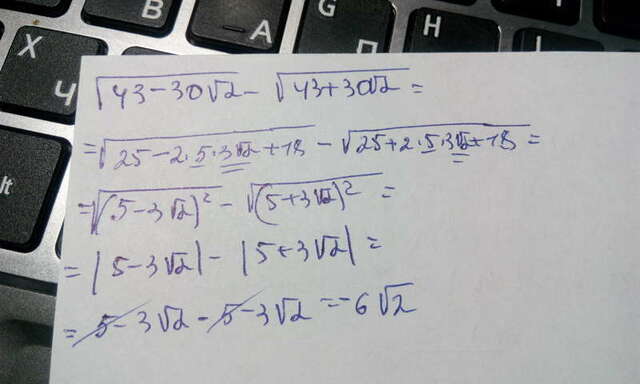 X
Ч
B
A
G
П
H
lt
√(43-30√2) - √(43+30√2) =
= √(25-2·5·3√2+18) - √(25+2·5·3√2+18) =
= √((5-3√2)²) - √((5+3√2)²) =
= |5-3√2| - |5+3√2| =
= 5-3√2-5-3√2 = -6√2